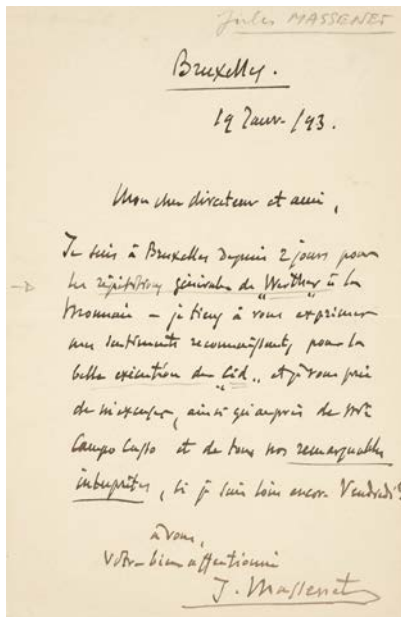 Jules MASSENET
Bruxelles.
19 Janv. /93.
Mon cher directeur et ami,
Je suis à Bruxelles depuis 2 jours pour
les répétitions générales de "Werther" à la
Monnaie – je tiens à vous exprimer
mes sentiments reconnaissants pour la
belle exécution du "Cid" et je vous prie
de m'excuser, ainsi qu'auprès de
Campo Casso et de tous nos remarquables
interprètes, si je suis loin encore Vendredi
à vous,
votre bien affectionné
J. Massenet